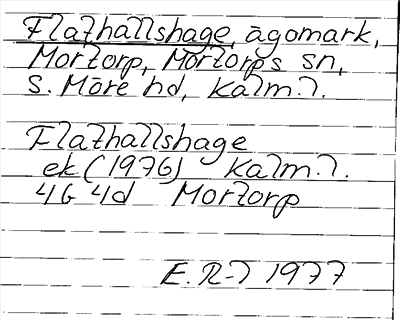 Flathallshage, ägomark,
Mortorp, Mortorps sn,
S. Möre hd, Kalm.l.
Flathallshage
ek (1976) Kalm.l.
4G 4d Mortorp
E. R-l 1977